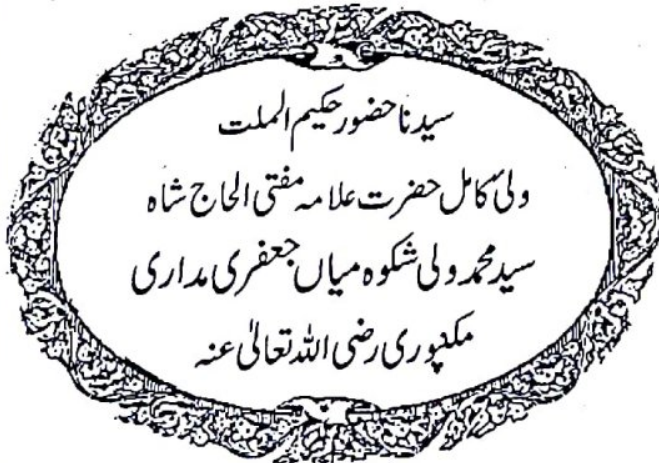 سیدنا حضور حکیم الملت
ولئ کامل حضرت علامہ مفتی الحاج شاہ
سید محمد ولی شکوہ میاں جعفری مداری
مکنپوری رضی اللہ تعالیٰ عنہ